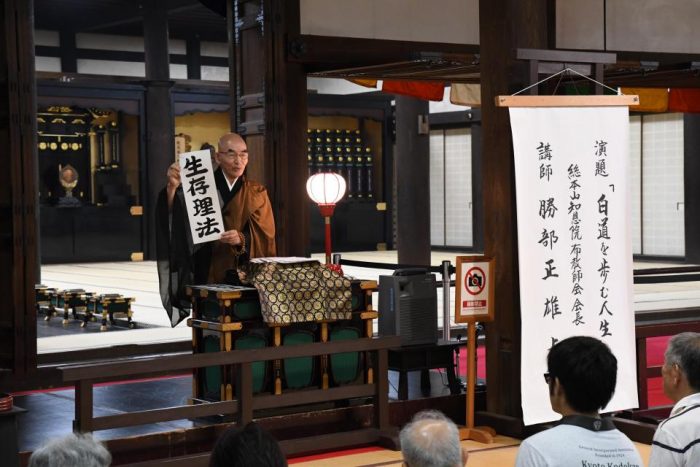 生存理法
演題「白道を歩む人生
総本山知恩院布教師会会長
講師 勝部正雄
Kyoto Kodokan